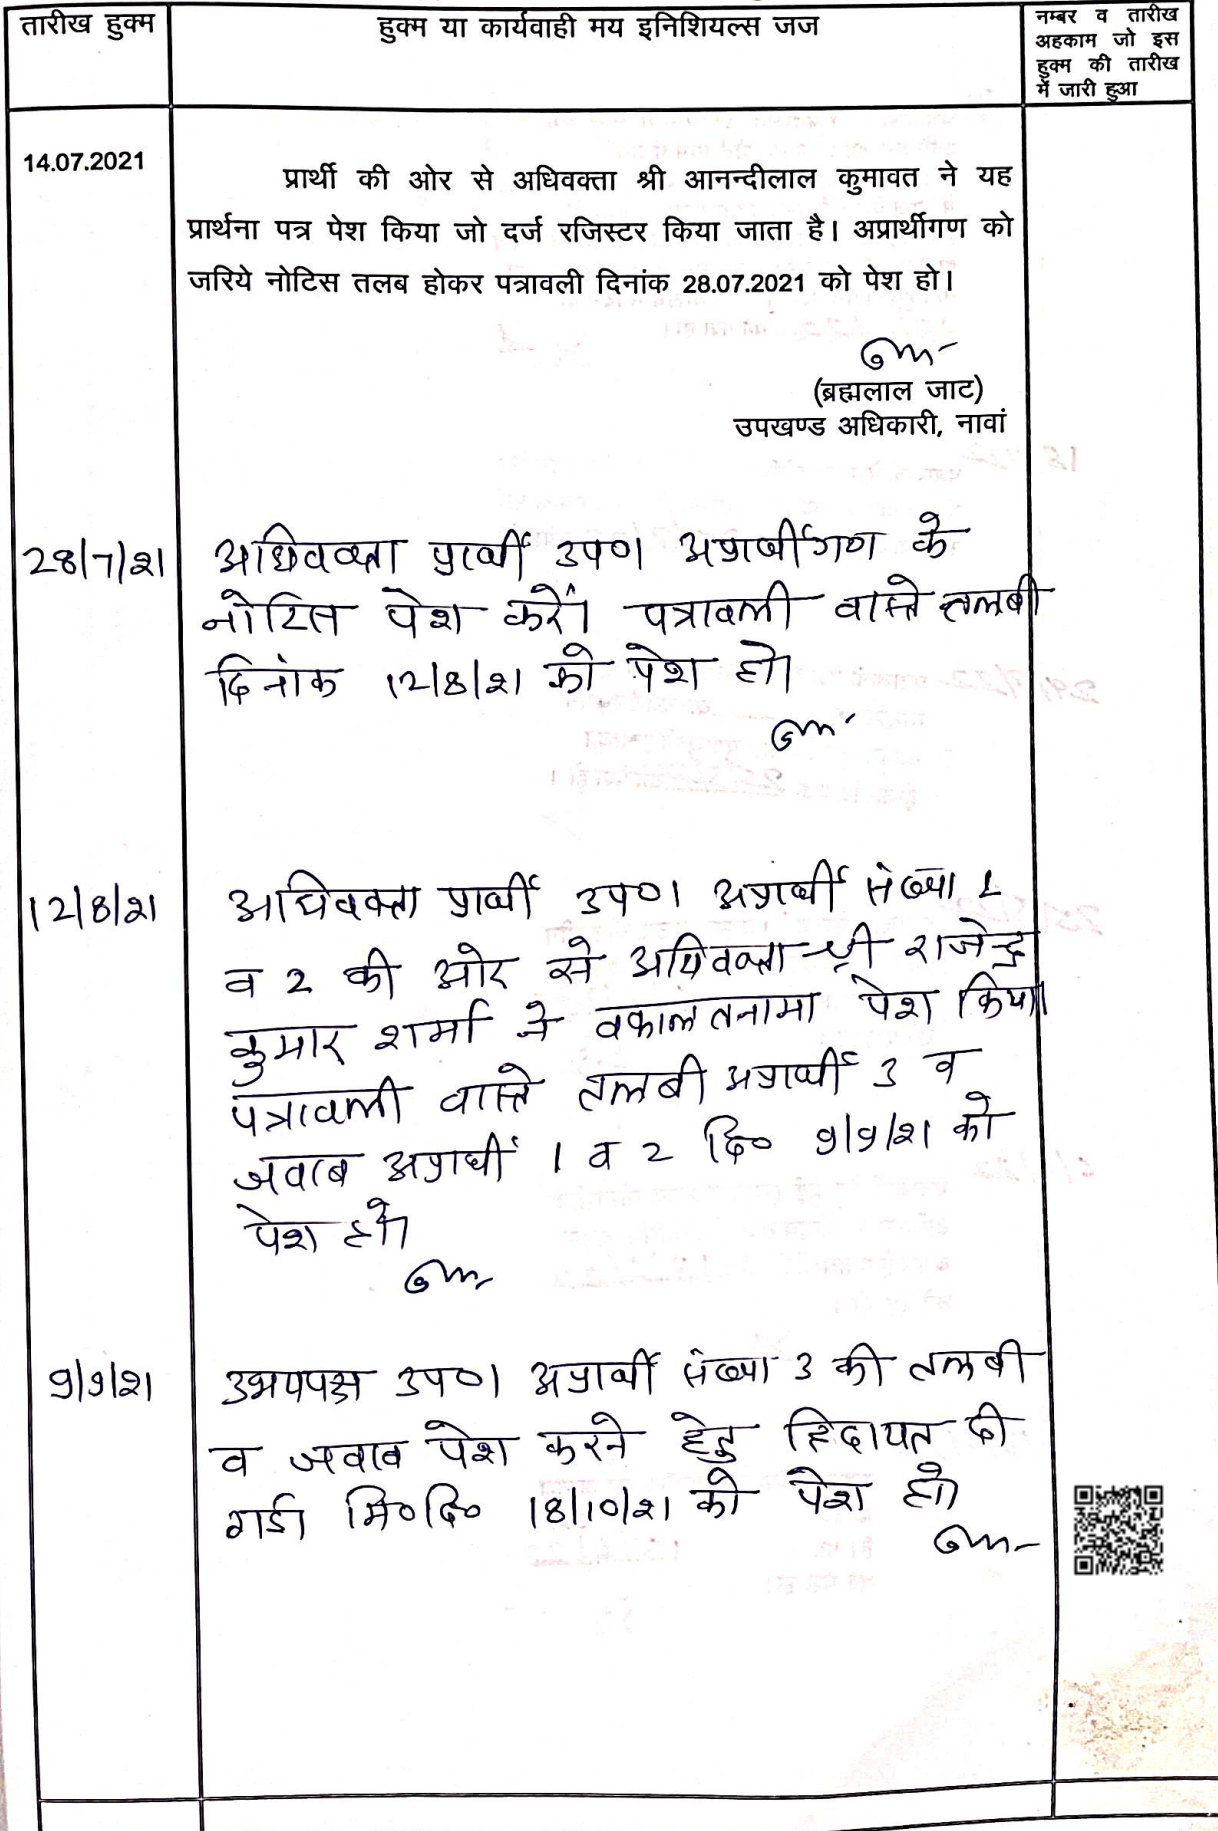 तारीख हुक्म
हुक्म या कार्यवाही मय इनिशियल्स जज
नम्बर व तारीख
अहकाम जो इस
हुक्म की तारीख
में जारी हुआ
14.07.2021
प्रार्थी की ओर से अधिवक्ता श्री आनन्दीलाल कुमावत ने यह
प्रार्थना पत्र पेश किया जो दर्ज रजिस्टर किया जाता है। अप्रार्थीगण को
जरिये नोटिस तलब होकर पत्रावली दिनांक 28.07.2021 को पेश हो।
(ब्रह्मलाल जाट)
उपखण्ड अधिकारी, नावां
28/7/21 अधिवक्ता प्रार्थी उप०। अप्रार्थीगण के
नोटिस पेश करें। पत्रावली वास्ते तलबी
दिनांक 12/8/21 को पेश हो।
12/8/21 अधिवक्ता प्रार्थी उप०। अप्रार्थी संख्या 1
व 2 की ओर से अधिवक्ता श्री राजेन्द्र
कुमार शर्मा ने वकालतनामा पेश किया।
पत्रावली वास्ते तलबी अप्रार्थी 3 व
जवाब अप्रार्थी 1 व 2 दि० 9/9/21 को
पेश हो।
9/9/21 उभयपक्ष उप०। अप्रार्थी संख्या 3 की तलबी
व जवाब पेश करने हेतु हिदायत दी
गई। मि०दि० 18/10/21 को पेश हो।